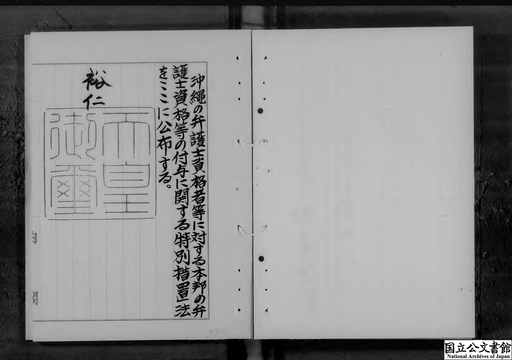 沖縄の弁護士資格者等に対する本邦の弁
護士資格等の付与に関する特別措置法
をここに公布する。
裕仁
天皇
御璽
国立公文書館
National Archives of Japan